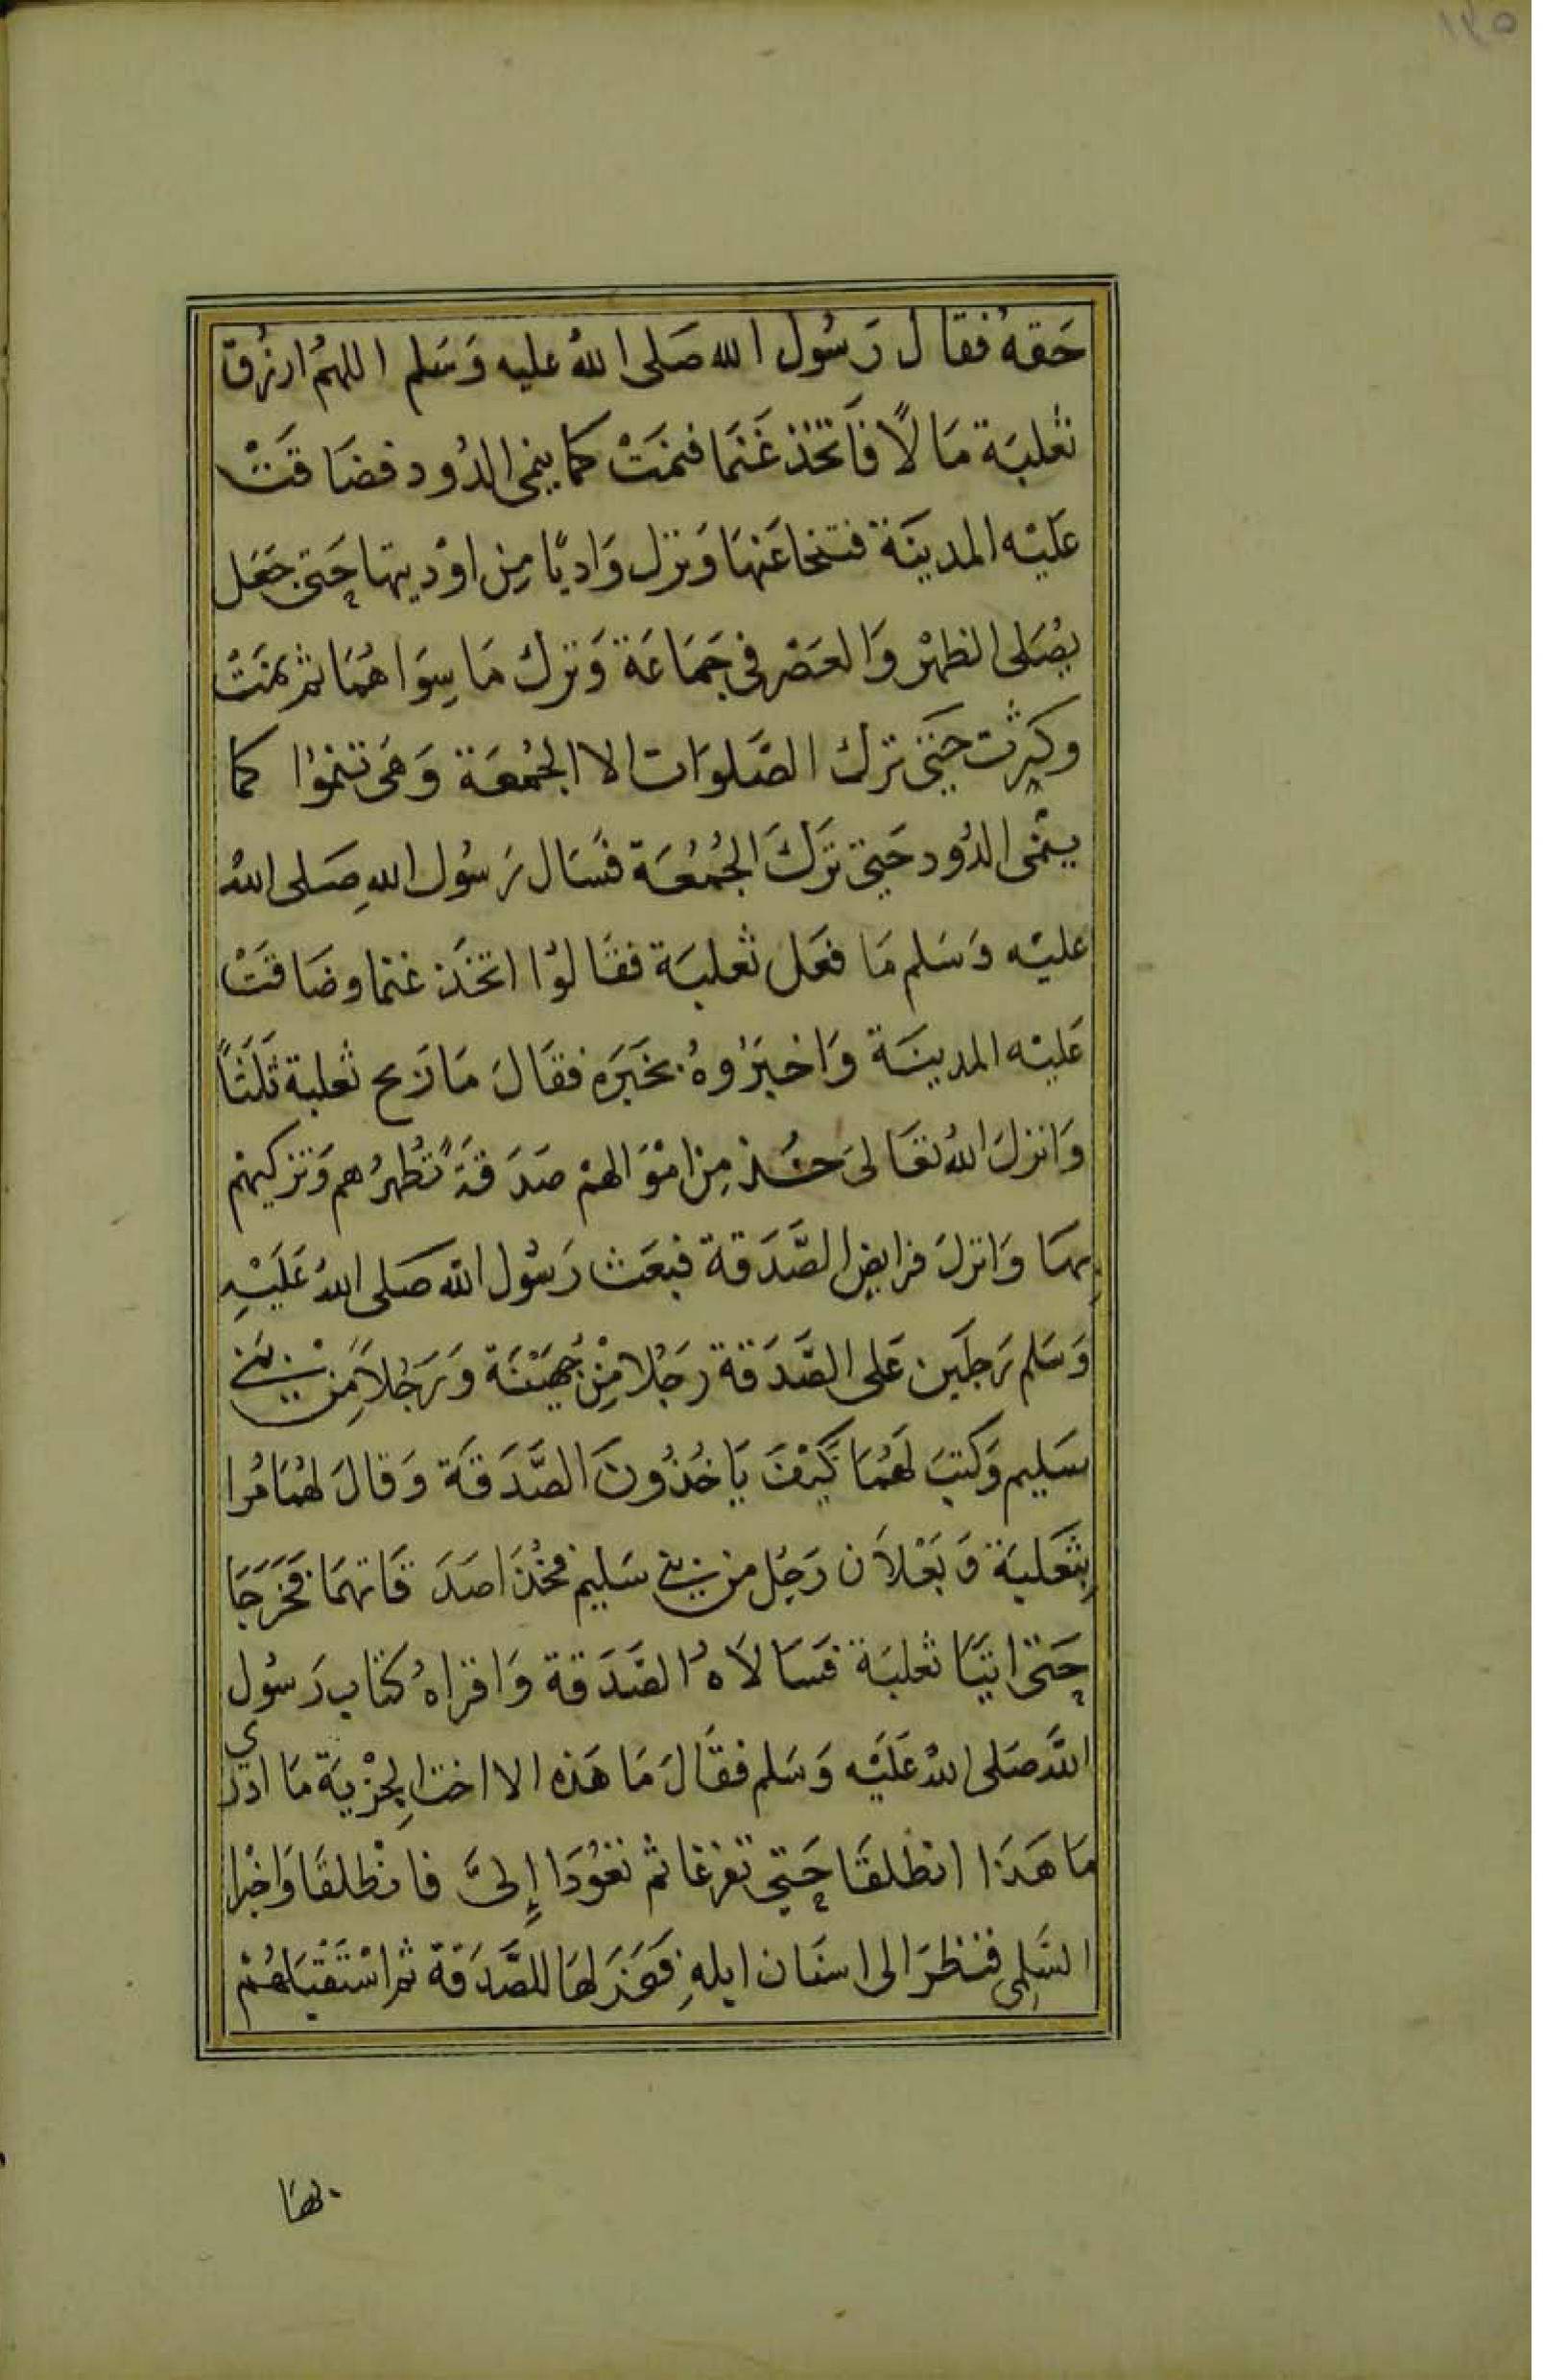 ١٤٥
حَقهُ فقال رَسُول الله صَلى اللهُ عليه وَسَلم اللهمُ ارزُق
ثعلبَة مَالًا فاَتخذ غَنمَا فنمَتْ كما ينمي الدُود فضاقَتْ
عَليْه المدينَة فتنحا عَنهَا وَنزل وَاديًا مِن اوْديتها حَتى جَعَل
يصُلى الظهْر وَالعَصْر في جَمَاعَة وَترك مَا سِوَاهُمَا ثم نمَتْ
وكثرت حَتى ترك الصَّلوَات الا الجُمعَة وَهى تنموُا كما
ينْمى الدُود حَتى تَرَكَ الجُمُعَة فسَال رَسُول اللهِ صَلى اللهُ
عليْه وَسَلم مَا فعَل ثعلبَة فقالوْا اتخذَ غنما وضَاقتْ
عَليْه المدينَة وَاخبرُوهُ بخبَرَه فقالَ مَا زيح ثعلبة ثلَثاً
وَانزلَ اللهُ تعَالىَ خُذ مِن امْوَالهمْ صَدَقةً تُطهرُهم وَتزكيهم
بِهَا وَانزلَ فرايض الصَّدَقة فبعَث رَسُول الله صَلى اللهُ عَلَيْهِ
وَسَلم رَجلَين عَلى الصَّدَقة رَجُلا مِنْ جُهَيْنَة وَرَجُلاً مِن بَني
سَليم وَكتبَ لهُمَا كَيْفَ يَاخُذُونَ الصَّدَقَة وَقالَ لهمَا مُرا
بِثعَلبَة وَبَعْلاَن رَجُل من بني سَليم فخُذَا صَدَقاتهمَا فخَرَجَا
حَتى اتيَا ثعلبَة فسَالاَهُ الصَّدَقة وَاقراهُ كتاب رَسُول
اللهَ صَلى اللهُ عَلَيْه وَسَلم فقالَ مَا هَذه الا اخت الجِزْيَة مَا ادرى
مَا هَذا انطلقَا حَتى تفرغا ثم تعُودَا إِلىَّ فانْطلقَا وَاخبرا
السَلمِى فنظرَا الى اسنَان ابلهِ فعَزلهَا للصَّدَقَة ثم اسْتَقْبَلهُمْ
بها